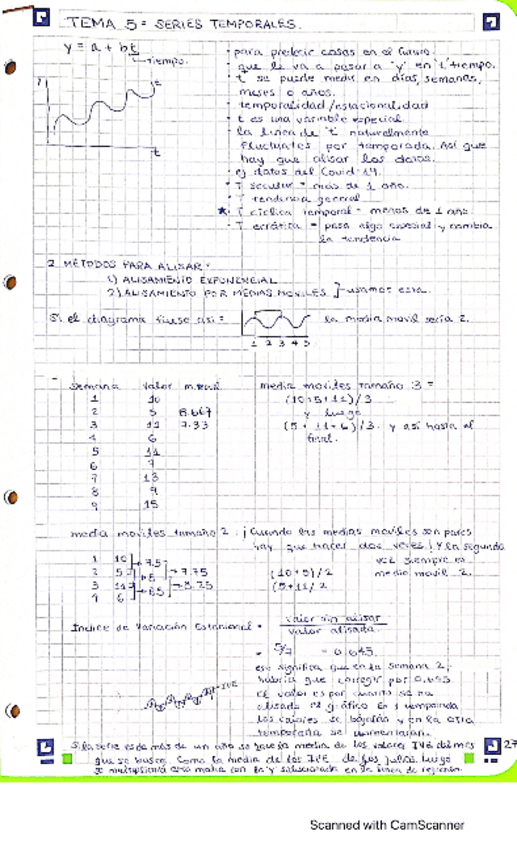 TEMA 5 = SERIES TEMPORALES.
y = a + bt
tiempo.
· para predecir cosas en el futuro.
· que le va a pasar a "y" en "t" tiempo.
· t se puede medir en días, semanas,
meses o años.
· temporalidad/estacionalidad
· t es una variable especial
· la línea de "t" naturalmente
fluctuantes por temporada. Así que
hay que alisar los datos.
· ej datos del Covid-19.
· T secular = más de 1 año.
· T tendencia general
* · T cíclica temporal = menos de 1 año
· T errática = pasa algo especial y cambia
la tendencia
y
t
t
2 MÉTODOS PARA ALISAR:
1) ALISAMIENTO EXPONENCIAL
2) ALISAMIENTO POR MEDIAS MÓVILES ] usamos esta.
Si el diagrama fuese así = la media movil sería 2.
1 2 3 4 5
Semana valor m.movil
1 10
2 5 8.667
3 11 7.33
4 6
5 11
6 7
7 13
8 9
9 15
media moviles tamaño 3 =
(10+5+11)/3
y luego
(5+11+6)/3. y así hasta el
final.
media moviles tamaño 2: ¡Cuando las medias moviles son pares
hay que hacer dos veces! Y la segunda
vez siempre es
media movil 2.
1 10
2 5
3 11
4 6
7.5
8
8.5
7.75
8.25
(10+5)/2
(5+11)/2
Indice de Variación Estacional = valor sin alisar
valor alisada.
= 5/7 = 0.645.
eso significa que en la semana 2,
habría que corregir por 0.645
el valor es por cuanto se ha
alisado el gráfico en 1 temporada
los valores se bajarán y en la otra
temporada se
IVE
Si la serie es de más de un año se hace la media de los valores IVE del mes
que se busca. Como la media de los IVE de los julios. Luego
se multiplica esa media con la y en la línea de regresión
27
Scanned with CamScanner